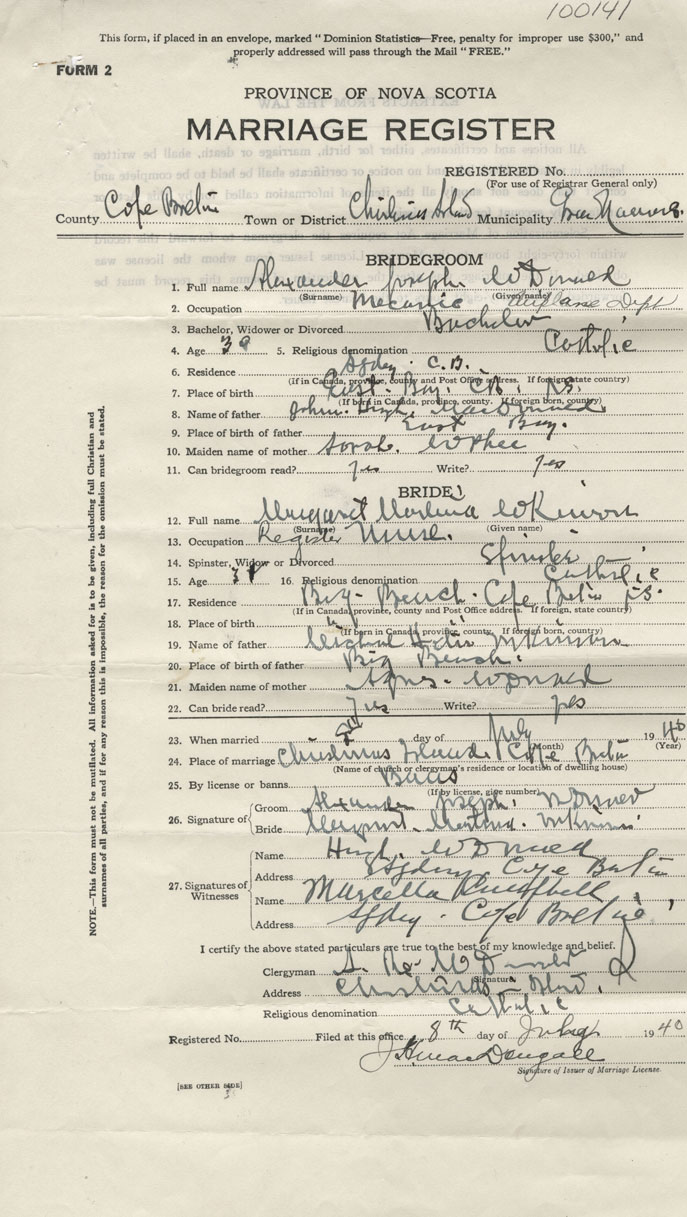 100141
This form, if placed in an envelope, marked "Dominion Statistics—Free, penalty for improper use $300," and
properly addressed will pass through the Mail "FREE."
FORM 2
PROVINCE OF NOVA SCOTIA
MARRIAGE REGISTER
REGISTERED No.
(For use of Registrar General only)
County Cape Breton Town or District Christmas Island Municipality
BRIDEGROOM
1. Full name Alexander Joseph McDonald
(Surname) (Given name)
2. Occupation Mecanic Airplane Dept
3. Bachelor, Widower or Divorced Bachelor
4. Age 39 5. Religious denomination Catholic
6. Residence Sydney. C.B.
(If in Canada, province, county and Post Office address. If foreign state county)
7. Place of birth East Bay, C.B. N.S.
(If born in Canada, province, county. If foreign born, country)
8. Name of father John Hugh MacDonald
9. Place of birth of father East Bay.
10. Maiden name of mother Sarah McPhee
11. Can bridegroom read? yes Write? yes
BRIDE
12. Full name Margaret McKinnon
(Surname) (Given name)
13. Occupation Register Nurse.
14. Spinster, Widow or Divorced Spinster
15. Age 16. Religious denomination Catholic
17. Residence Big Beach. Cape Breton N.S.
(If in Canada, province, county and Post Office address. If foreign, state country)
18. Place of birth " "
(If born in Canada, province, county. If foreign born, country)
19. Name of father Michael McKinnon
20. Place of birth of father Big Beach.
21. Maiden name of mother Agnes McDonald
22. Can bride read? yes Write? yes
23. When married day of July 1940
(Month) (Year)
24. Place of marriage Christmas Island Cape Breton
(Name of church or clergyman's residence or location of dwelling house)
25. By license or banns Banns
(If by license, give number)
26. Signature of Groom Alexander Joseph McDonald
Bride Margaret McKinnon
27. Signatures of Witnesses
Name Hugh McDonald
Address Sydney Cape Breton
Name Marcella Campbell
Address Sydney. Cape Breton
I certify the above stated particulars are true to the best of my knowledge and belief.
Clergyman McDonald
Signature
Address Christmas Island.
Religious denomination Catholic
Registered No. Filed at this office 8th day of July 1940
MacDougall
Signature of Issuer of Marriage License.
[SEE OTHER SIDE]
NOTE.—This form must not be mutilated. All information asked for is to be given, including full Christian and
surnames of all parties, and if for any reason this is impossible, the reason for the omission must be stated.